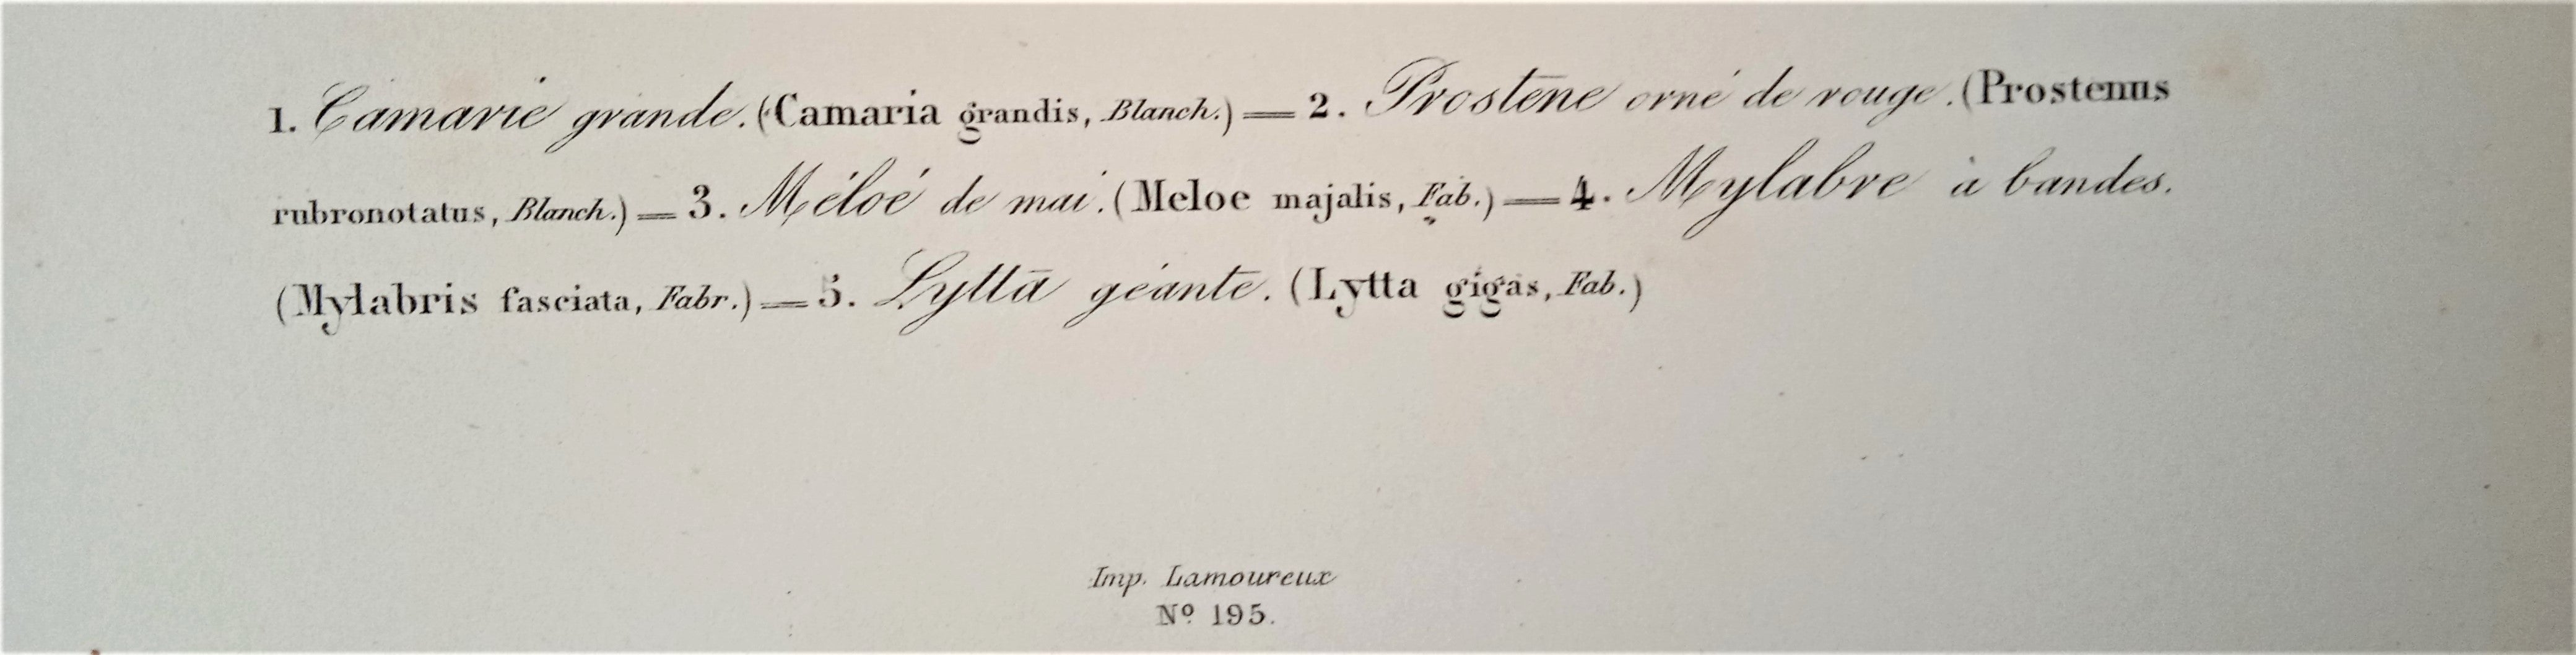 1. Camarie grande. (Camaria grandis, Blanch.) = 2. Prostène orné de rouge. (Prostenus
rubronotatus, Blanch.) = 3. Méloé de mai. (Meloe majalis, Fab.) = 4. Mylabre à bandes.
(Mylabris fasciata, Fabr.) = 5. Lytta géante. (Lytta gigas, Fab.)
Imp. Lamoureux
Nº 195.